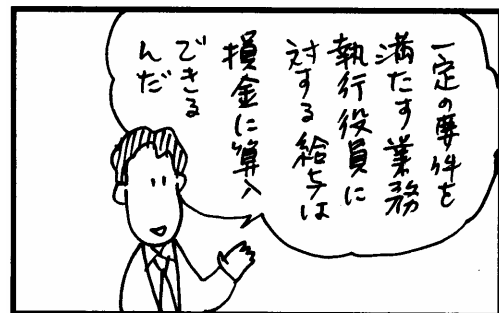 一定の要件を
満たす業務
執行役員に
対する給与は
損金に算入
できる
んだ